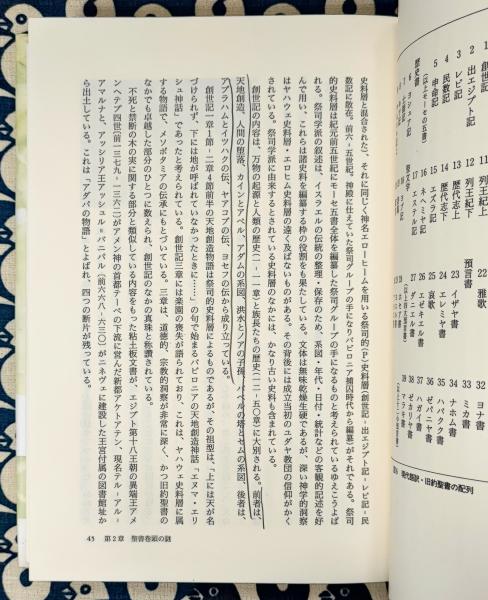 1 創世記
2 出エジプト記
3 レビ記
4 民数記
5 申命記
（以上モーセの五書）
歴史書
6 ヨシュア記
11 列王紀上
12 列王紀下
13 歴代志上
14 歴代志下
15 エズラ記
16 ネヘミヤ記
17 エステル記
22 雅歌
預言書
23 イザヤ書
24 エレミヤ書
25 哀歌
26 エゼキエル書
27 ダニエル書
32 ヨナ書
33 ミカ書
34 ナホム書
35 ハバクク書
36 ゼパニヤ書
37 ハガイ書
38 ゼカリヤ書
39 マラキ書
現代語訳・旧約聖書の配列
史料層と混合された）、それと同じく神名エローヒームを用いる祭司的（P）史料層（創世記・出エジプト記・レビ記・民
数記に散在。前六、五世紀。神殿に仕えていた祭司グループの手になりバビロニア捕囚時代から編纂）がそれである。祭司
的史料層は紀元前五世紀にモーセ五書全体を編纂した祭司グループの手になるものと考えられているゆえこうよば
れる。祭司学派の叙述は、イスラエルの伝統の整理・保存のため、系図・年代・日付・統計などの客観的記述を好
んで用い、これらは諸史料を編纂する枠の役割をも果たしている。文体は無味乾燥生硬であるが、深い神学的洞察
はヤハウェ史料層・エロヒーム史料層の遠く及ばないものがある。その背後には成立当初のユダヤ教団の信仰がかく
されている。祭司学派に由来するとされている史料層のなかには、かなり古い史料も含まれている。
創世記の内容は、万物の起源と人類の歴史（一―一一章）と族長たちの歴史（一二―五〇章）に大別される。前者は、
天地創造、人間の堕落、カインとアベル、アダムの系図、洪水とノアの子孫、バベルの塔とセムの系図、後者は、
アブラハムとイツハクの伝、ヤアコブの伝、ヨセフの伝から成り立っている。
創世記一章1節―二章4節前半の天地創造物語は祭司的史料層によるものであるが、その祖型は、「上には天が名
づけられず、下には地が呼ばれていなかったときに……」の句で始まるバビロニアの天地創造神話「エヌマ・エリ
シュ神話」であったと考えられている。創世記三章には楽園の喪失が語られており、これは、ヤハウェ史料層に属
する物語で、メソポタミアの伝承にもとづいている。三章は、道徳的、宗教的洞察が非常に深く、かつ旧約聖書の
なかでも卓越した部分のひとつに数えられ、創世記のなかの真珠と称讃されている。
不死と禁断の木の実に関する部分と類似している内容をもった粘土板文書が、エジプト第十八王朝の異端王アメ
ンヘテプ四世（前一三七九―一三六二）がアメン神の首都テーベの下流に営んだ新都アケトアテン、現名テル＝アル＝
アマルナと、アッシリア王アッシュル＝バニパル（前六六八―六三〇）がニネヴェに建設した王宮付属の図書館址か
ら出土している。これは「アダパの物語」とよばれ、四つの断片が残っている。
45 第2章 聖書巻頭の謎